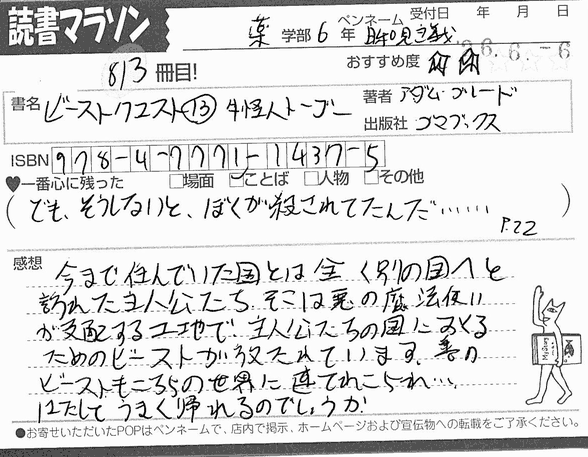 読書マラソン
ペンネーム 受付日 年 月 日
薬 学部 6 年
おすすめ度
813 冊目!
書名 ビーストクエスト⑬ 牛怪人トーゴー
著者 アダム・ブレード
出版社 ゴマブックス
ISBN 978-4-7771-1437-5
♥一番心に残った □場面 ☑ことば □人物 □その他
(でも、そうしないと、ぼくが殺されてたんだ……)
P.22
感想
今まで住んでいた国とは全く別の国へと
訪れた主人公たち。そこは悪の魔法使い
が支配する土地で、主人公たちの国におくる
ためのビーストが放たれています。善の
ビーストもこちらの世界に連れてこられ…
はたしてうまく帰れるのでしょうか
●お寄せいただいたPOPはペンネームで、店内で掲示、ホームページおよび宣伝物への転載をご了承ください。